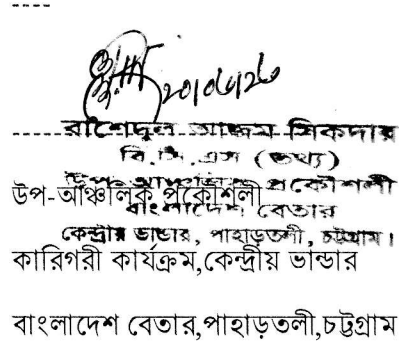 ----
-----রাশেদুল আজম শিকদার
বি.সি.এস (তথ্য)
উপ-আঞ্চলিক প্রকৌশলী
উপ-আঞ্চলিক প্রকৌশলী
বাংলাদেশ বেতার
কেন্দ্রীয় ভান্ডার, পাহাড়তলী, চট্টগ্রাম।
কারিগরী কার্যক্রম,কেন্দ্রীয় ভান্ডার
বাংলাদেশ বেতার,পাহাড়তলী,চট্টগ্রাম